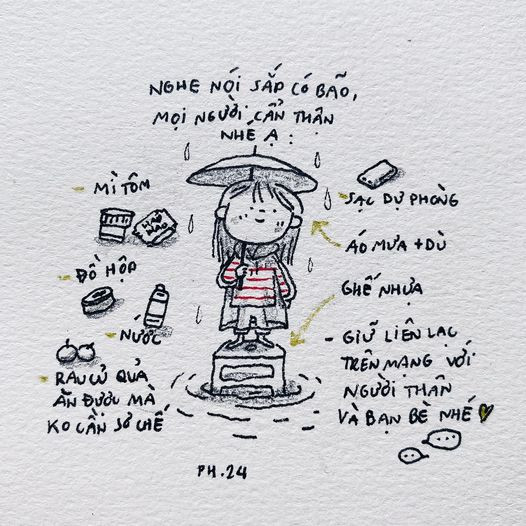 NGHE NÓI SẮP CÓ BÃO,
MỌI NGƯỜI CẨN THẬN
NHÉ Ạ :
- MÌ TÔM
HẢO HẢO
- ĐỒ HỘP
- NƯỚC
- RAU CỦ QUẢ
ĂN ĐƯỢC MÀ
KO CẦN SƠ CHẾ
- SẠC DỰ PHÒNG
ÁO MƯA + DÙ
GHẾ NHỰA
- GIỮ LIÊN LẠC
TRÊN MẠNG VỚI
NGƯỜI THÂN
VÀ BẠN BÈ NHÉ
PH.24